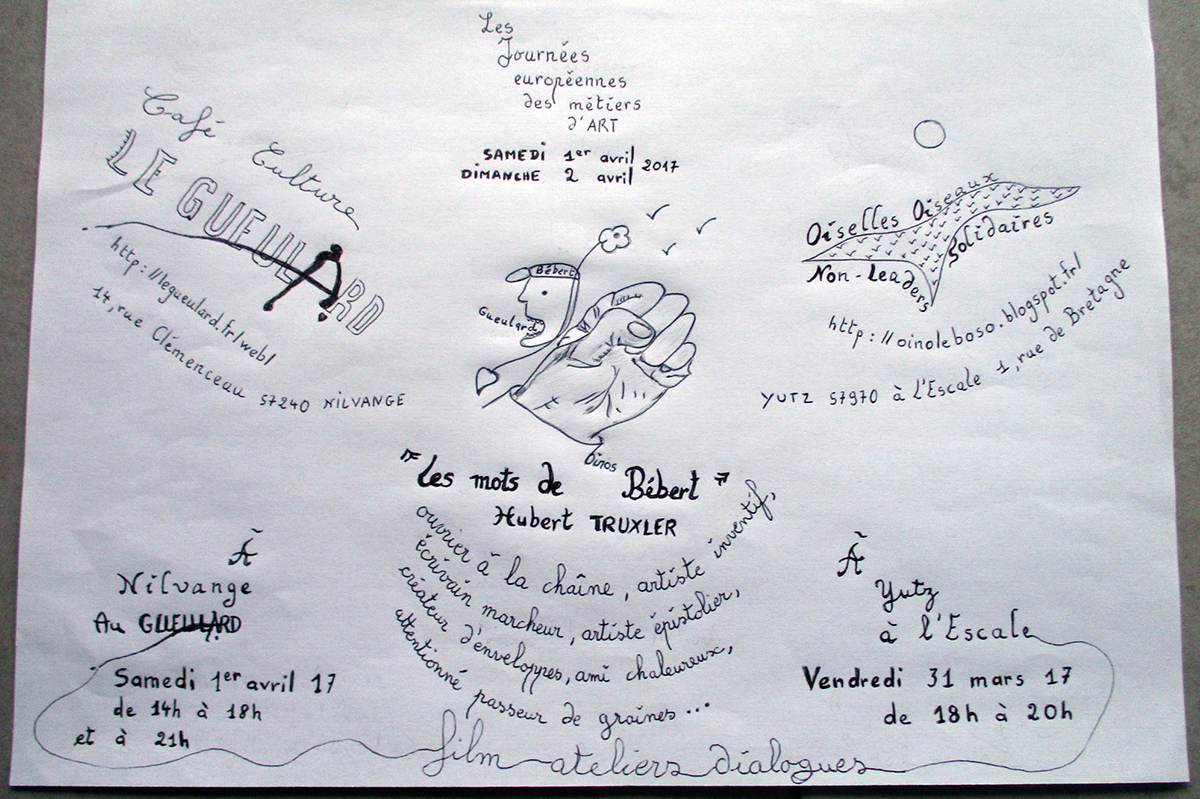 Les
Journées
européennes
des métiers
d'ART
SAMEDI 1er avril 2017
DIMANCHE 2 avril
Café Culture
LE GUEULARD
http://legueulard.fr/web/
14, rue Clémenceau 57240 NILVANGE
Oiselles Oiseaux
Solidaires
Non-Leaders
http://oinoleboso.blogspot.fr/
YUTZ 57970 à l'Escale 1, rue de Bretagne
Bébert
Gueulard
Oinos
"Les mots de Bébert"
Hubert TRUXLER
ouvrier à la chaîne, artiste inventif,
écrivain marcheur, artiste épistolier,
créateur d'enveloppes, ami chaleureux,
attentionné passeur de graines...
À
Nilvange
Au GUEULARD
Samedi 1er avril 17
de 14h à 18h
et à 21h
À
Yutz
à l'Escale
Vendredi 31 mars 17
de 18h à 20h
film ateliers dialogues